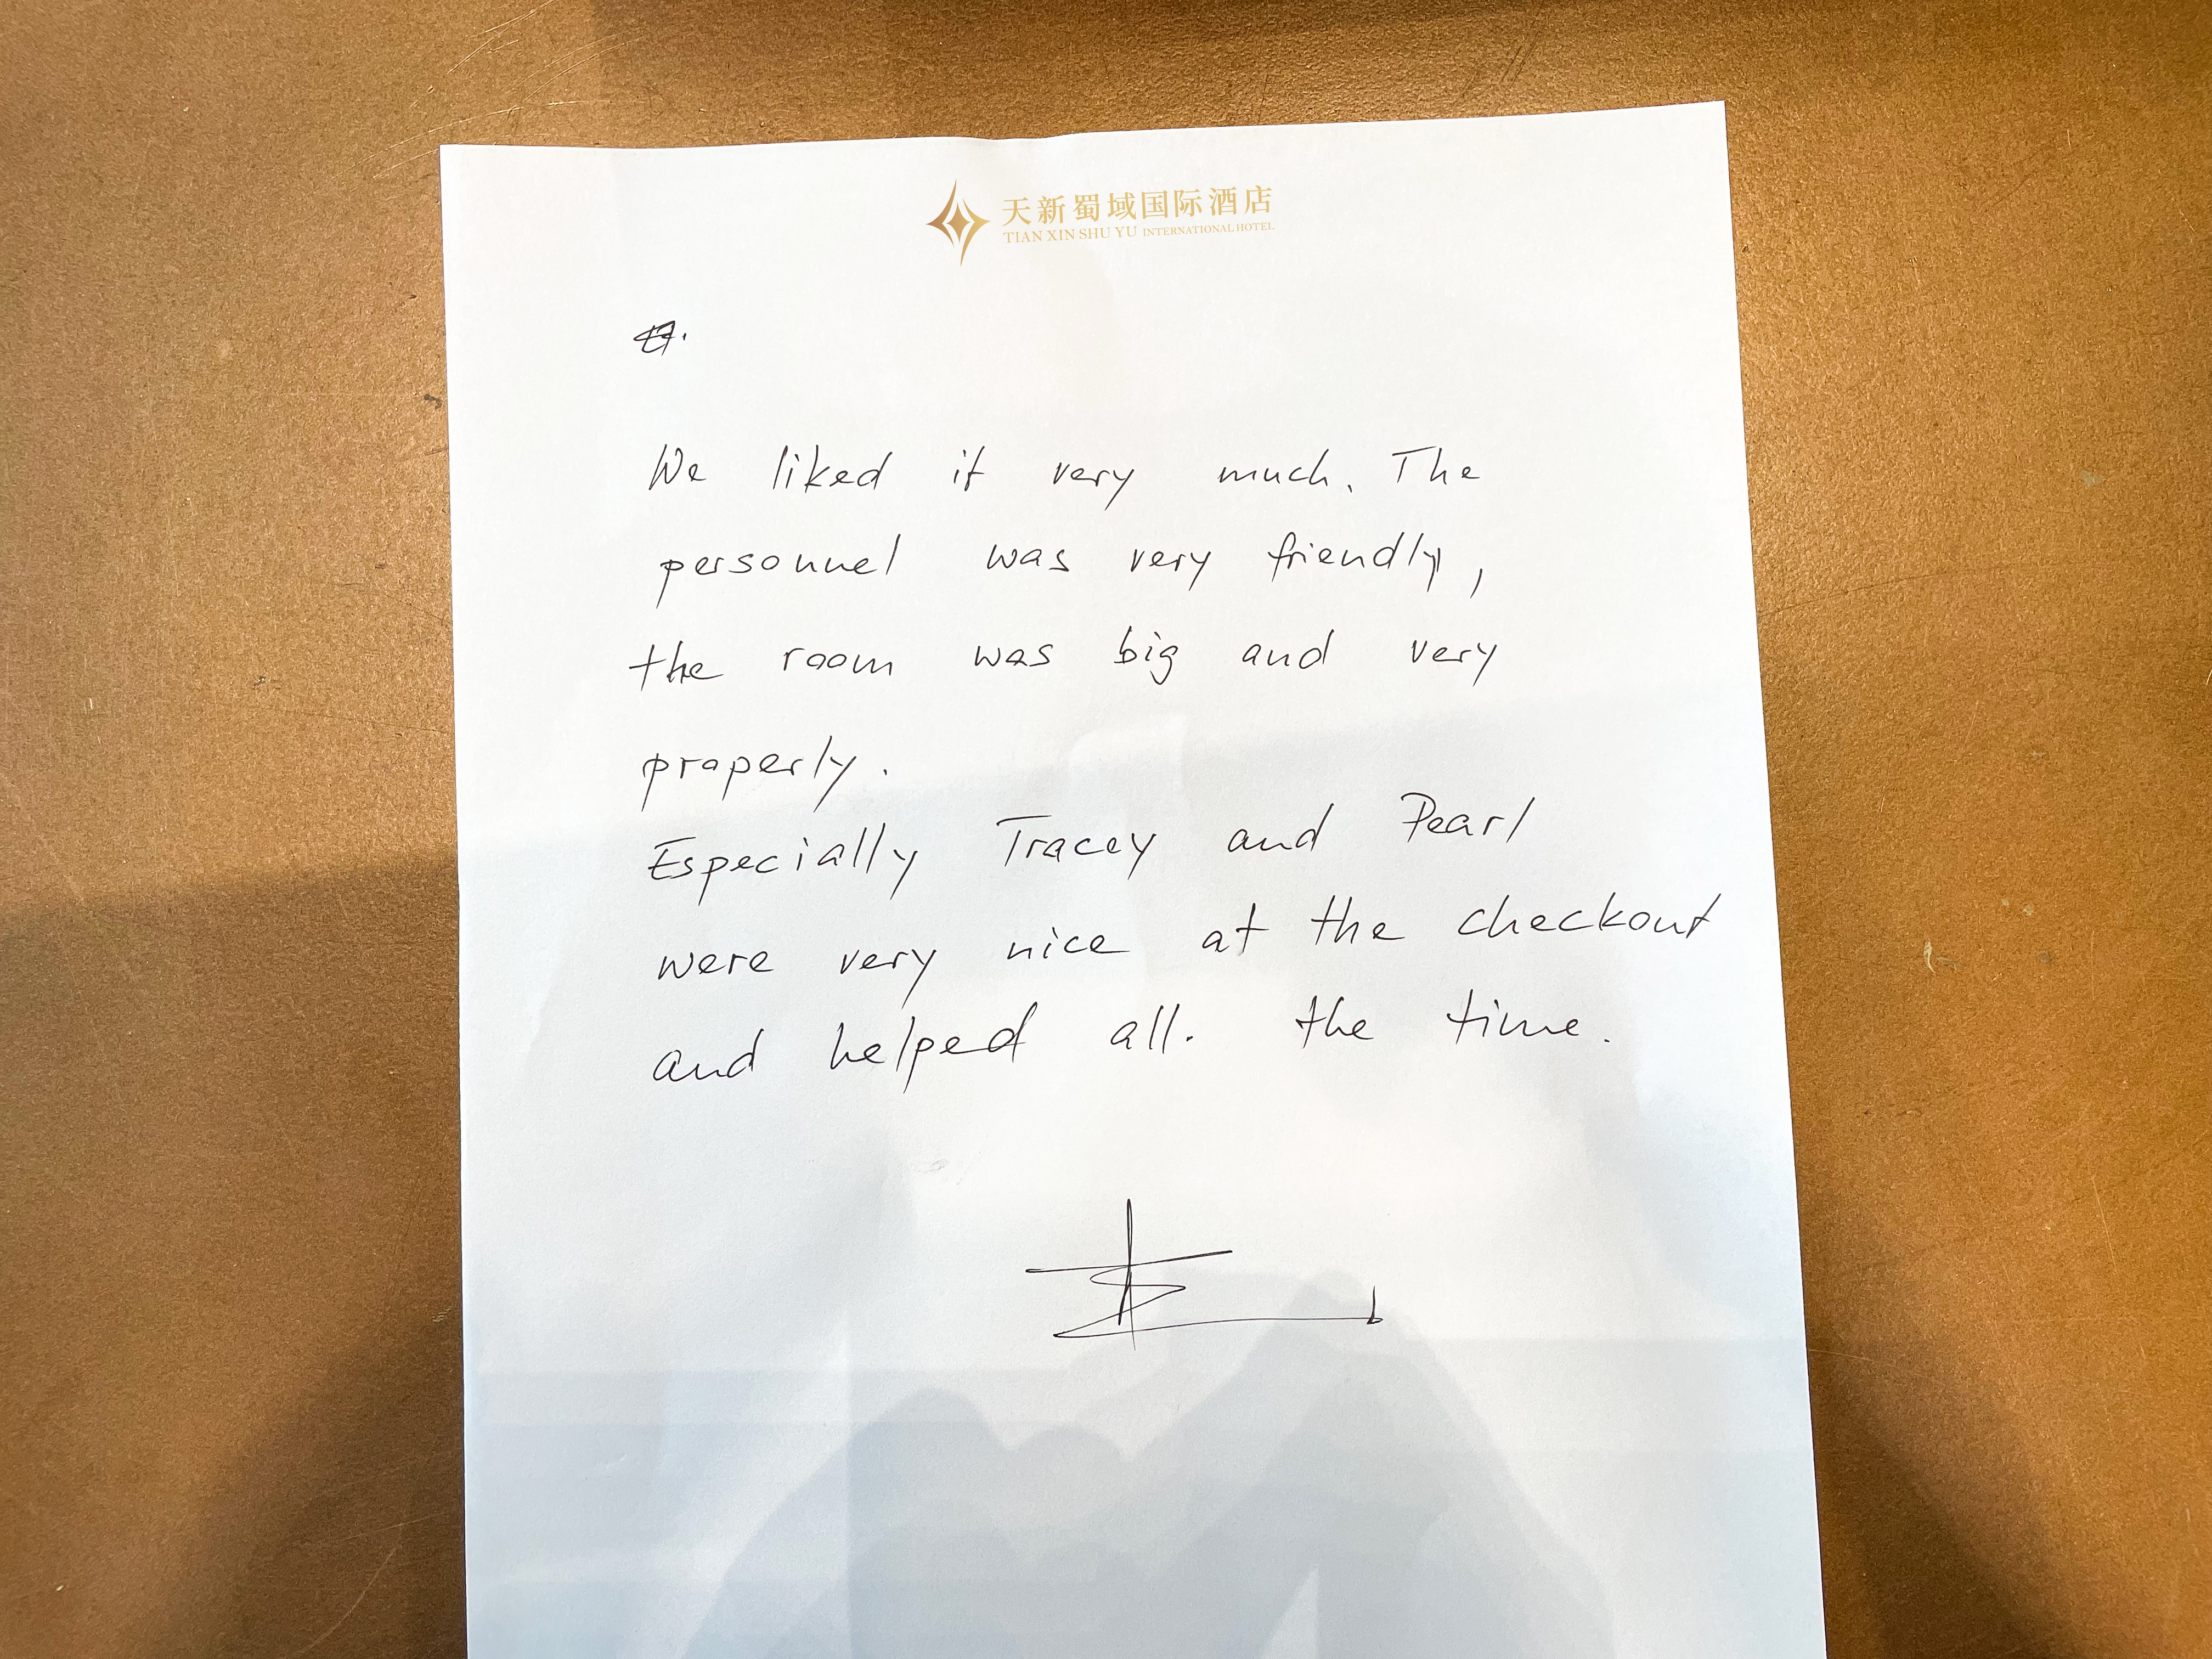 天新蜀域国际酒店
TIAN XIN SHU YU INTERNATIONAL HOTEL
We liked it very much. The
personnel was very friendly,
the room was big and very
properly.
Especially Tracey and Pearl
were very nice at the checkout
and helped all. the time.